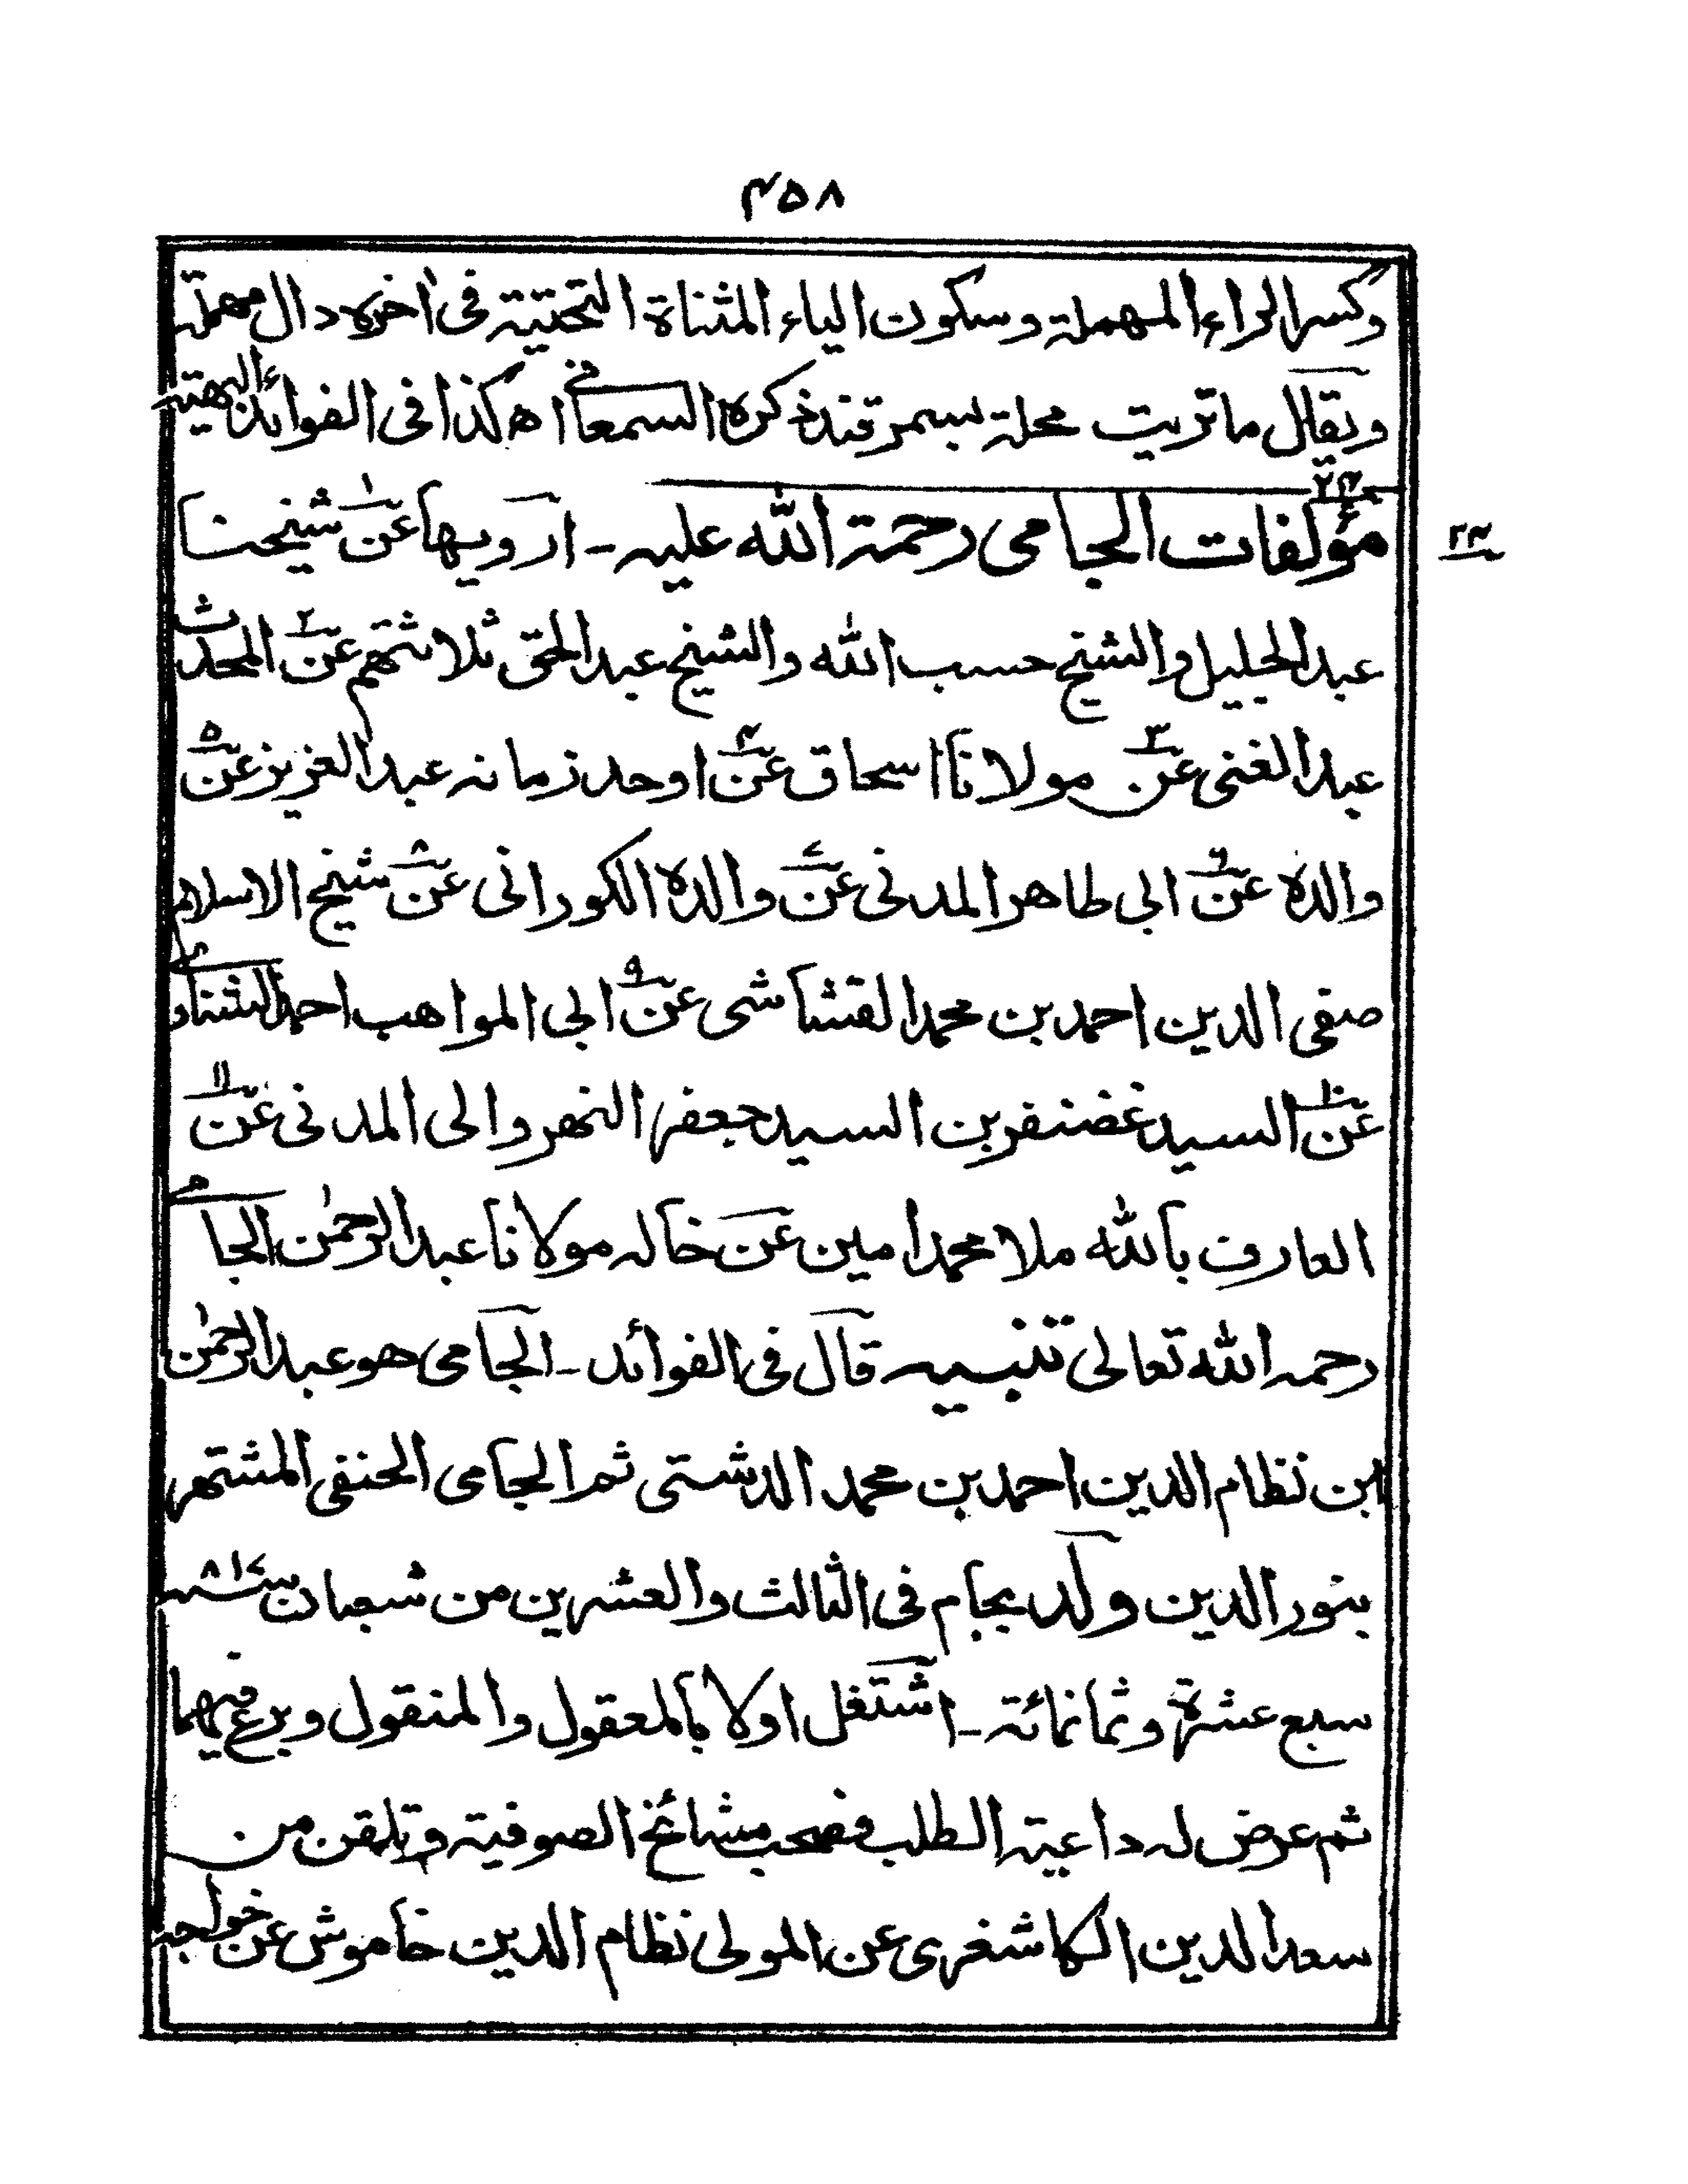 ۴۵۸
وكسر الراء المهملة وسكون الياء المثناة التحتية فى اخره دال مهملة
ويقال ماتريت محلة بسمرقند ذكره السمعانى اه كذا فى الفوائد البهية
۲۴
مؤلفات الجامى رحمة الله عليه - ارويها عن۱ شيخنا
۲۴
عبد الجليل والشيخ حسب الله والشيخ عبد الحق ثلاثتهم عن۲ المحدث
عبد الغنى عن۳ مولانا اسحاق عن۴ اوحد زمانه عبد العزيز عن۵
والده عن۶ ابى طاهر المدنى عن۷ والده الكورانى عن۸ شيخ الاسلام
صفى الدين احمد بن محمد القشاشى عن۹ ابى المواهب احمد الشناوى
عن۱۰ السيد غضنفر بن السيد جعفر النهروالى المدنى عن۱۱
العارف بالله ملا محمد امين عن خاله مولانا عبد الرحمٰن الجامى
رحمه الله تعالى تنبيه قال فى الفوائد - الجامى هو عبد الرحمٰن
ابن نظام الدين احمد بن محمد الدشتى ثم الجامى الحنفى المشتهر
بنور الدين ولد بجام فى الثالث والعشرين من شعبان سنة ۸۱۷
سبع عشرة وثمانمائة - اشتغل اولا بالمعقول والمنقول وبرع فيهما
ثم عرض له داعية الطلب فصحب مشائخ الصوفية وتلقن من
سعد الدين الكاشغرى عن المولى نظام الدين خاموش عن خواجه